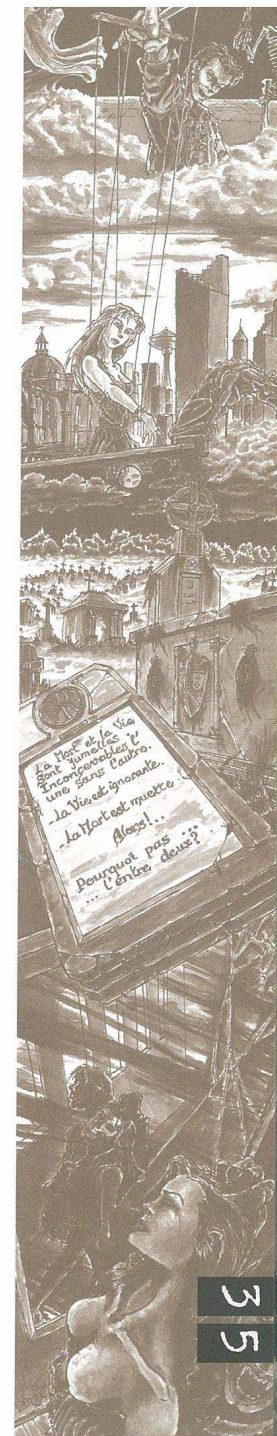 La Mort et la Vie
Sont jumelles
Inconcevables l'
une sans l'autre.
La Vie est ignorante.
La Mort est muette
Alors!...
Pourquoi pas
... l'entre deux?
35